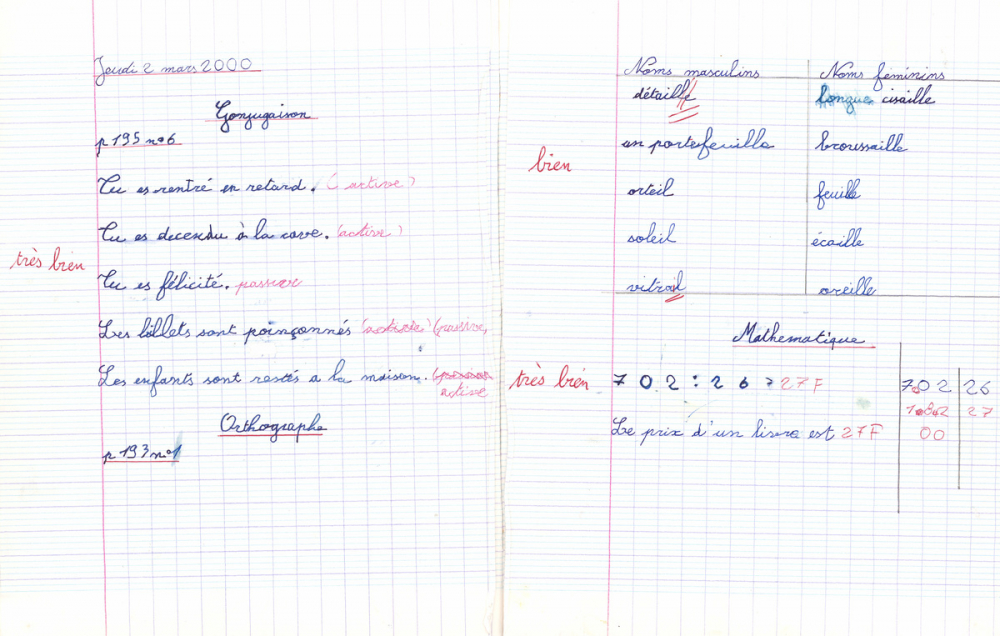 Jeudi 2 mars 2000
Conjugaison
p 195 n°6
Tu es rentré en retard. (active)
Tu es decendu à la cave. (active)
très bien
Tu es félicité. passive
Les billets sont poinçonnés (active) (passive,
Les enfants sont restés a la maison. (passive
active
Orthographe
p 193 n°1
Noms masculins Noms féminins
détaille longue cisaille
bien
un portefeuille broussaille
orteil feuille
soleil écaille
vitrail oreille
Mathematique
très bien
7 0 2 : 2 6 = 27F
Le prix d'un livre est 27F
702 26
182 27
00